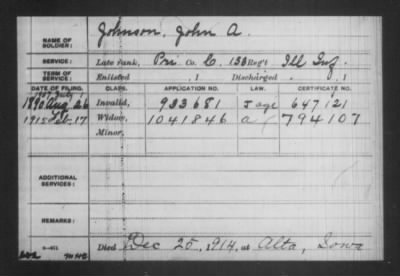 NAME OF SOLDIER: Johnson, John A.
SERVICE: Late rank, Pri Co. C, 133 Reg't Ill Inf.
TERM OF SERVICE: Enlisted , 1 Discharged , 1
DATE OF FILING. CLASS. APPLICATION NO. LAW. CERTIFICATE NO.
1907 July 1
1890 Aug 26 Invalid, 933681 J age 647121
1915 Feb 17 Widow, 1041846 a 794107
Minor,
ADDITIONAL SERVICES:
REMARKS:
Died Dec 25, 1914, at Alta, Iowa